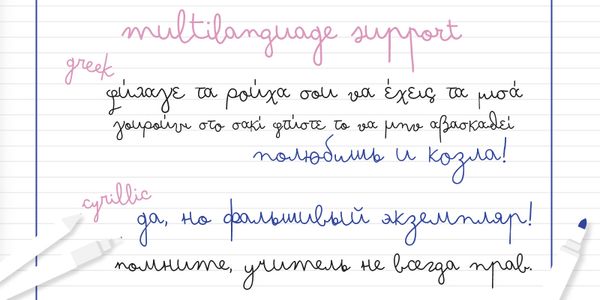 multilanguage support
greek
φύλαγε τα ρούχα σου να έχεις τα μισά
γουρούνι στο σακί φτύστε το να μην αβασκαθεί
полюбишь и козла!
cyrillic
да, но фальшивый экземпляр!
помните, учитель не всегда прав.